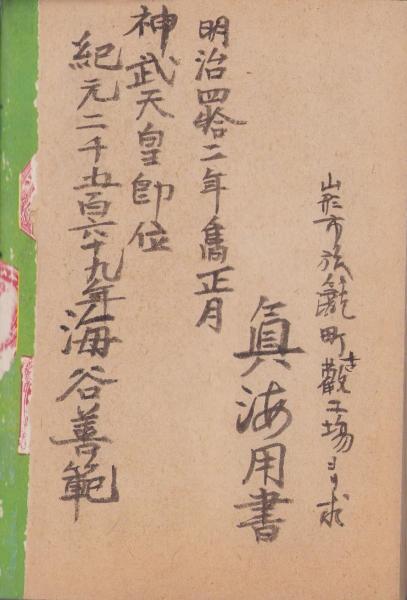 山形市旅籠町さ勸工場ヨリ求
眞海用書
明治四拾二年舊正月
神武天皇卽位
紀元二千五百六十九年海谷善範